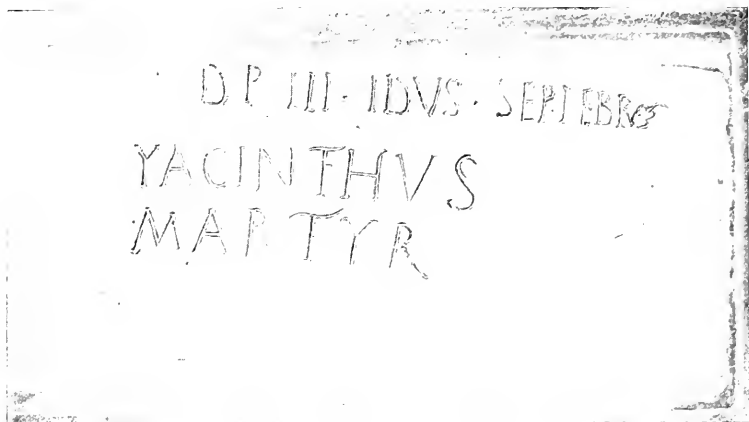 DP III · IDVS · SEPTEBR
YACINTHVS
MARTYR